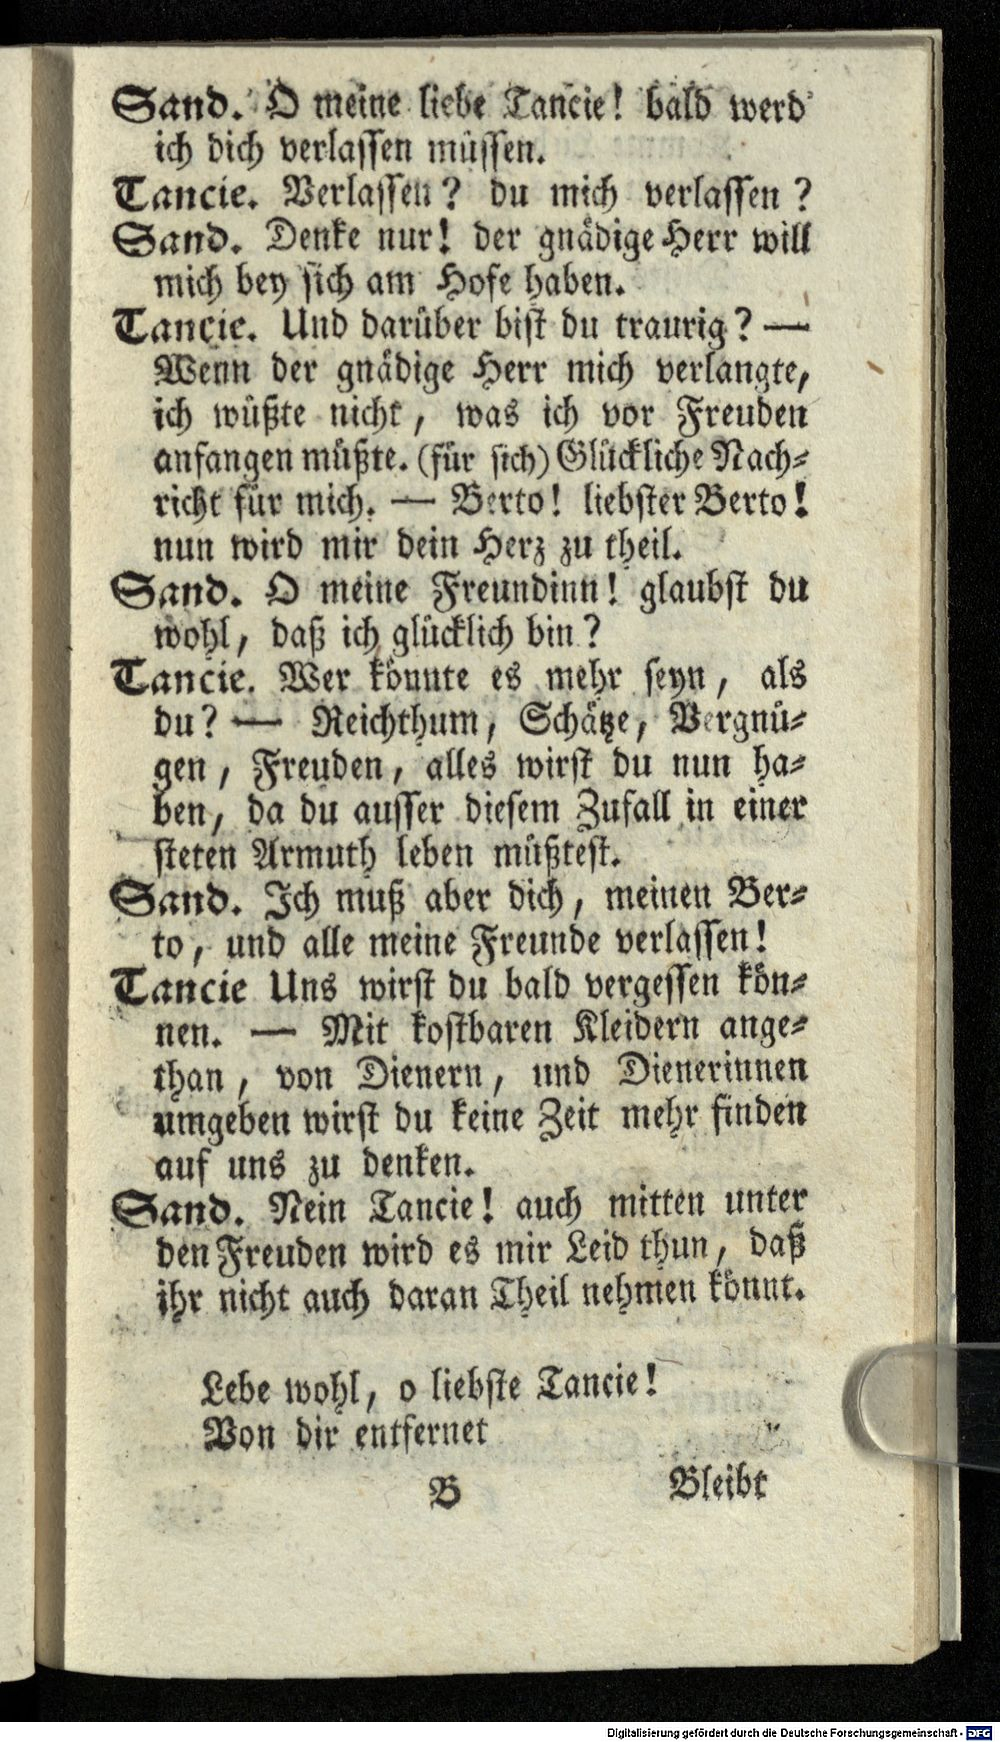 Sand. O meine liebe Tancie! bald werd
ich dich verlassen müssen.
Tancie. Verlassen? du mich verlassen?
Sand. Denke nur! der gnädige Herr will
mich bey sich am Hofe haben.
Tancie. Und darüber bist du traurig? —
Wenn der gnädige Herr mich verlangte,
ich wüßte nicht, was ich vor Freuden
anfangen müßte. (für sich) Glückliche Nach-
richt für mich. — Berto! liebster Berto!
nun wird mir dein Herz zu theil.
Sand. O meine Freundinn! glaubst du
wohl, daß ich glücklich bin?
Tancie. Wer könnte es mehr seyn, als
du? — Reichthum, Schätze, Vergnü-
gen, Freuden, alles wirst du nun ha-
ben, da du ausser diesem Zufall in einer
steten Armuth leben müßtest.
Sand. Ich muß aber dich, meinen Ber-
to, und alle meine Freunde verlassen!
Tancie Uns wirst du bald vergessen kön-
nen. — Mit kostbaren Kleidern ange-
than, von Dienern, und Dienerinnen
umgeben wirst du keine Zeit mehr finden
auf uns zu denken.
Sand. Nein Tancie! auch mitten unter
den Freuden wird es mir Leid thun, daß
ihr nicht auch daran Theil nehmen könnt.
Lebe wohl, o liebste Tancie!
Von dir entfernet
B Bleibt
Digitalisierung gefördert durch die Deutsche Forschungsgemeinschaft - DFG